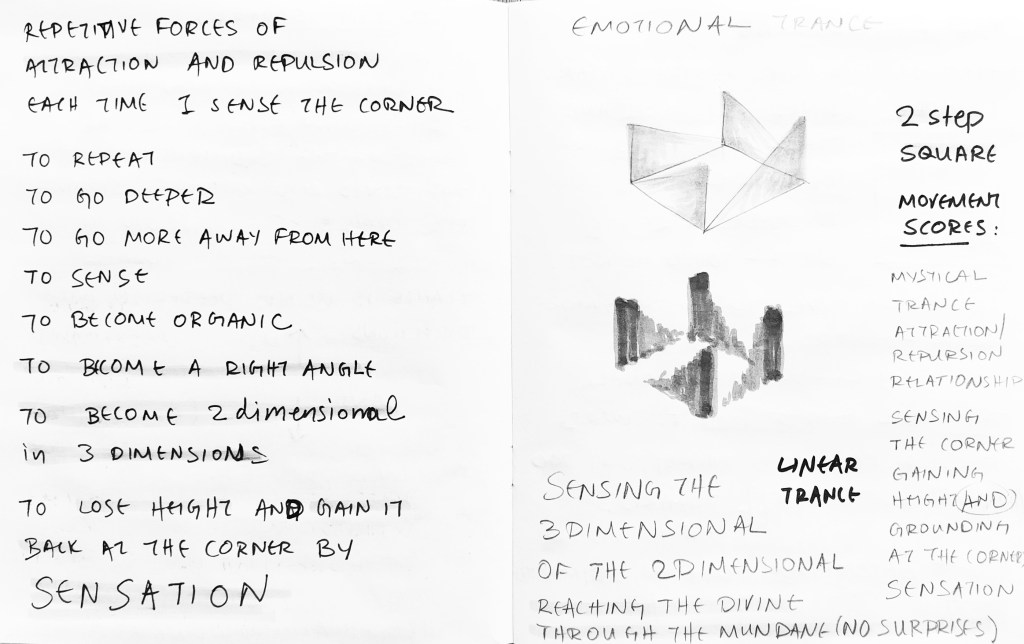 REPETITIVE FORCES OF
ATTRACTION AND REPULSION
EACH TIME I SENSE THE CORNER
TO REPEAT
TO GO DEEPER
TO GO MORE AWAY FROM HERE
TO SENSE
TO BECOME ORGANIC
TO BECOME A RIGHT ANGLE
TO BECOME 2 dimensional
in 3 DIMENSIONS
TO LOSE HEIGHT AND GAIN IT
BACK AT THE CORNER BY
SENSATION
EMOTIONAL TRANCE
2 step
SQUARE
MOVEMENT
SCORES:
MYSTICAL
TRANCE
ATTRACTION/
REPURSION
RELATIONSHIP
SENSING
THE CORNER
GAINING
HEIGHT (AND)
GROUNDING
AT THE CORNERS
SENSATION
LINEAR
TRANCE
SENSING THE
3 DIMENSIONAL
OF THE 2 DIMENSIONAL
REACHING THE DIVINE
THROUGH THE MUNDANE (NO SURPRISES)